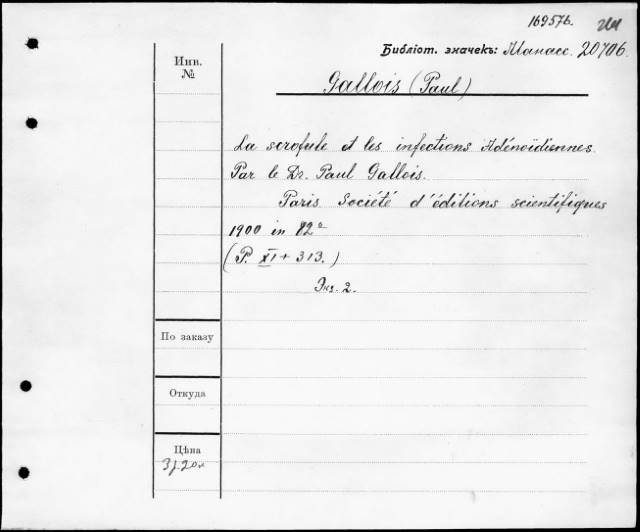 169576.
Библіот. значекъ: Манасс. 20706.
Инв.
№
Gallois (Paul)
La scrofule et les infections Adénoïdiennes.
Par le Dr. Paul Gallois.
Paris Société d'éditions scientifiques
1900 in 82°
(P. XI + 313.)
Экз. 2.
По заказу
Откуда
Цѣна